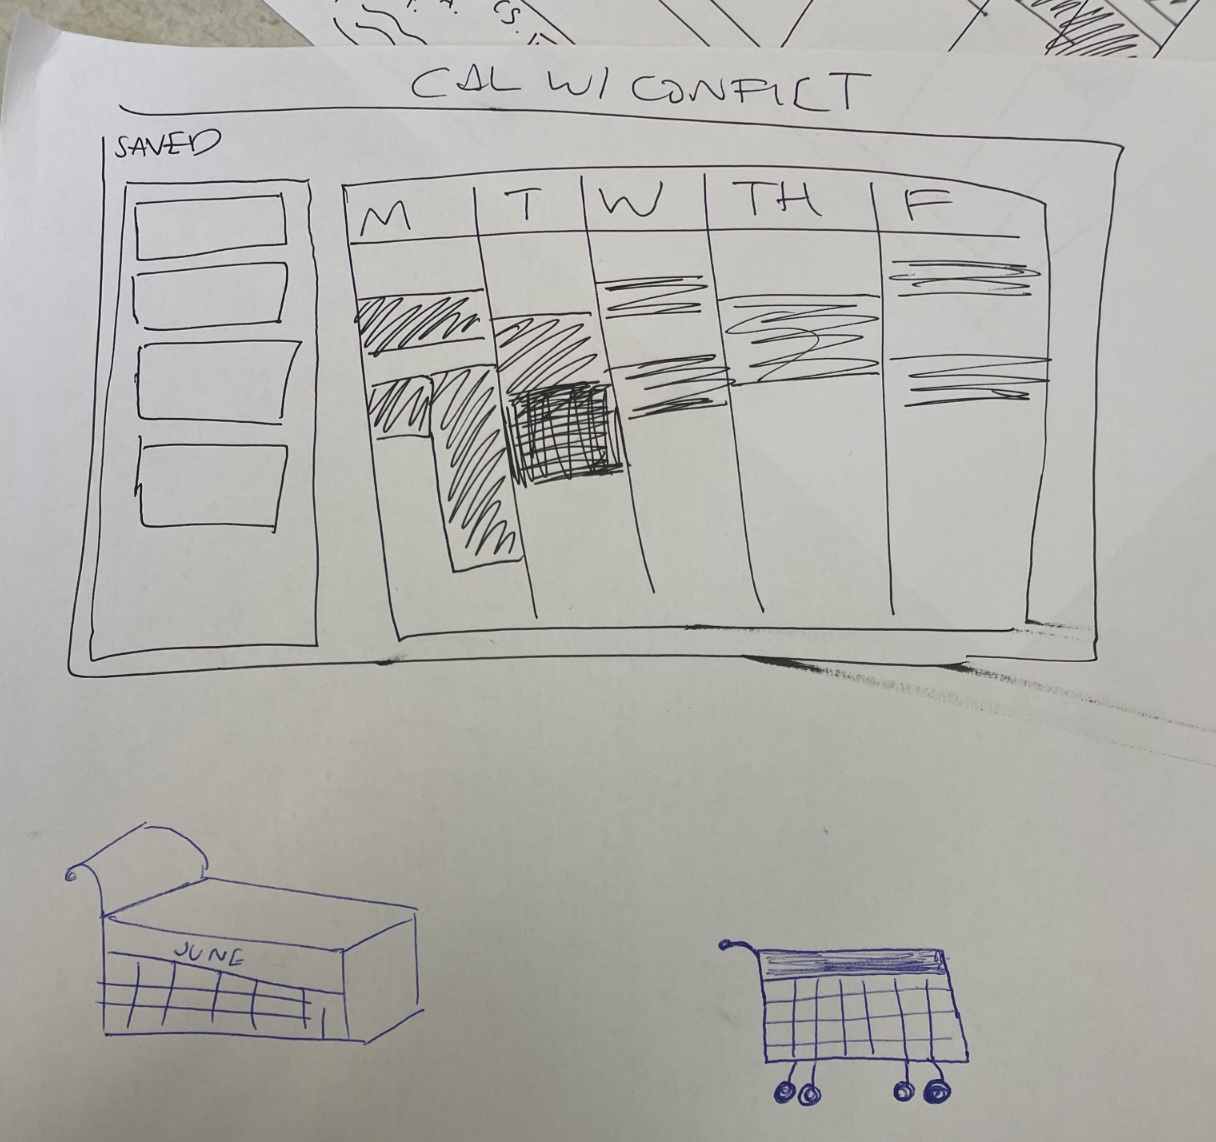 CAL W/ CONFICT
SAVED
M T W TH F
JUNE